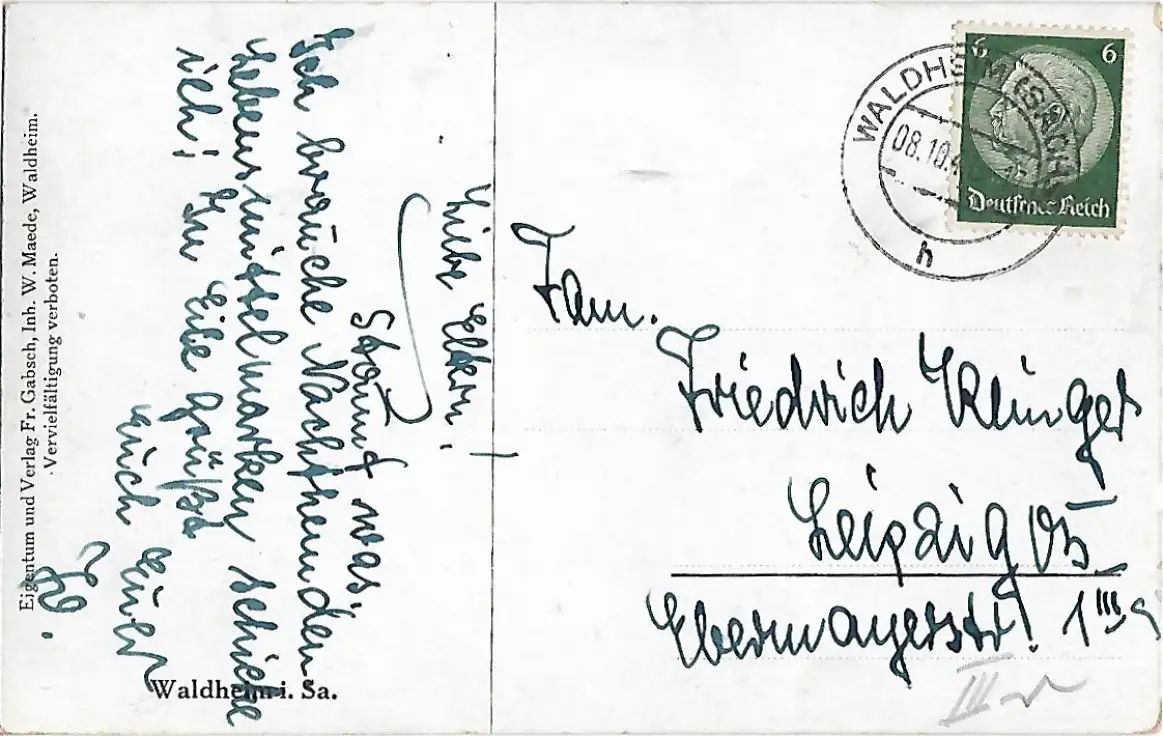 Eigentum und Verlag Fr. Gabsch, Inh. W. Maede, Waldheim.
Vervielfältigung verboten.
Liebe Eltern!
was,
Ich brauche Nachthemden.
Lebensmittelmarken schicke
ich! In Eile grüßt
Euch Euer
Waldheim i. Sa.
WALDHEIM (SACHS)
08.10.4
h
6 6
Deutsches Reich
Fam.
Friedrich
Leipzig O5
Ebermayerstr. 1 III
III